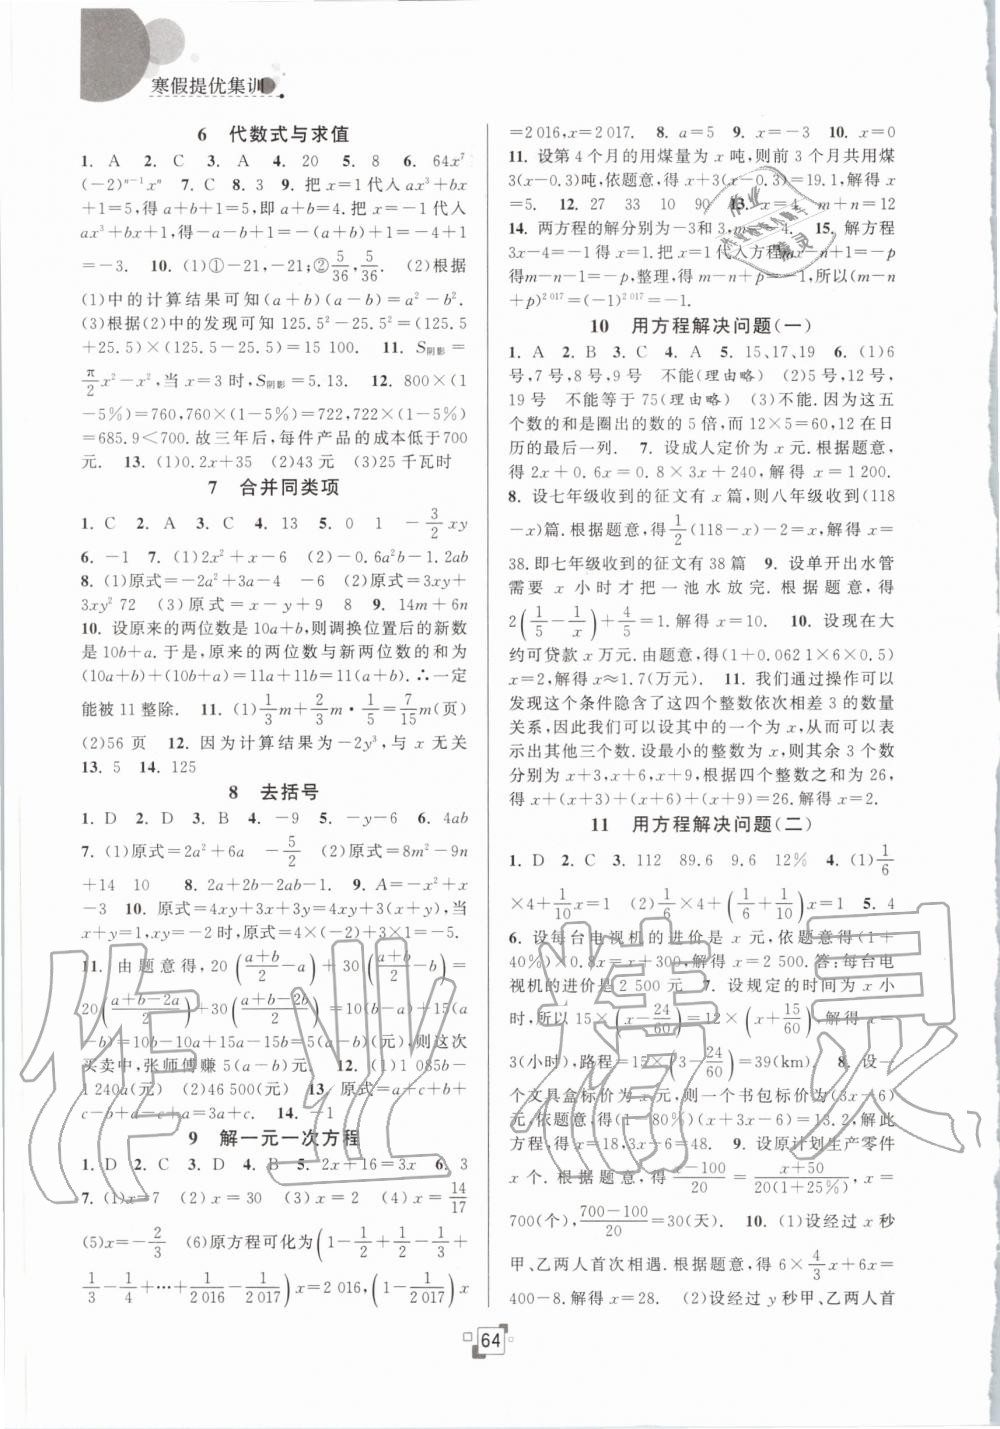 寒假提优集训
6 代数式与求值
1. A 2. C 3. A 4. 20 5. 8 6. 64x⁷
(-2)ⁿ⁻¹xⁿ 7. C 8. 3 9. 把 x=1 代入 ax³+bx
+1=5,得 a+b+1=5,即 a+b=4. 把 x=-1 代入
ax³+bx+1,得原式=-a-b+1=-(a+b)+1=-4+1
=-3. 10. (1)①-21,-21;②5/36,5/36. (2)根据
(1)中的计算结果可知(a+b)(a-b)=a²-b².
(3)根据(2)中的发现可知 125.5²-25.5²=(125.5
+25.5)×(125.5-25.5)=15 100. 11. S阴影=
π/2x²-x²,当 x=3 时,S阴影=5.13. 12. 800×(1
-5%)=760,760×(1-5%)=722,722×(1-5%)
=685.9<700. 故三年后,每件产品的成本低于700
元. 13. (1)0.2x+35 (2)43 元 (3)25 千瓦时
7 合并同类项
1. C 2. A 3. C 4. 13 5. 0 1 -3/2xy
6. -1 7. (1)2x²+x-6 (2)-0.6a²b-1.2ab
8. (1)原式=-2a²+3a-4 -6 (2)原式=3xy+
3xy² 72 (3)原式=x-y+9 8 9. 14m+6n
10. 设原来的两位数是 10a+b,则调换位置后的新数
是 10b+a. 于是,原来的两位数与新两位数的和为
(10a+b)+(10b+a)=11a+11b=11(a+b). ∴一定
能被 11 整除. 11. (1)1/3m+2/3m·1/5=7/15m(页)
(2)56 页 12. 因为计算结果为-2y³,与 x 无关
13. 5 14. 125
8 去括号
1. D 2. D 3. B 4. -9 5. -y-6 6. 4ab
7. (1)原式=2a²+6a -5/2 (2)原式=8m²-9n
+14 10 8. 2a+2b-2ab 9. A=-x²+x
-3 10. 原式=4xy+3x+3y=4xy+3(x+y),当
x+y=1,xy=-2 时,原式=4×(-2)+3×1=-5.
11. 由题意得,20((a+b)/2-a)+30((a+b)/2-b)=
20((a+b-2a)/2)+30((a+b-2b)/2)=10(b-a)+15(a
-b)=10b-10a+15a-15b=5(a-b)(元),则这次
买卖中,张师傅赚 5(a-b)元 12. (1)1 085b-
1 240a(元) (2)46 500(元) 13. 原式=a+c+b+
c-b+a-c+a=3a+c. 14. -1
9 解一元一次方程
1. D 2. C 3. D 4. B 5. 2x+16=3x 6. 3
7. (1)x=7 (2)x=30 (3)x=2 (4)x=14/17
(5)x=-2/3 (6)原方程可化为(1-1/2+1/2-1/3+
1/3-1/4+…+1/2 016-1/2 017)x=2 016,(1-1/2 017)x
=2 016,x=2 017. 8. a=5 9. x=-3 10. x=0
11. 设第 4 个月的用煤量为 x 吨,则前 3 个月共用煤
3(x-0.3)吨,依题意,得 x+3(x-0.3)=19.1,解得 x
=5. 12. 27 33 10 90 13. x=4 m+n=12
14. 两方程的解分别为-3和3,m=4. 15. 解方程
3x-4=-1 得 x=1. 把 x=1 代入方程 mx-n=-p
得 m-n=-p,整理,得 m-n+p=-1,所以(m-n
+p)²⁰¹⁷=(-1)²⁰¹⁷=-1.
10 用方程解决问题(一)
1. A 2. B 3. C 4. A 5. 15,17,19 6. (1)6
号,7 号,8 号,9 号 不能(理由略) (2)5 号,12 号,
19 号 不能等于 75(理由略) (3)不能. 因为这五
个数的和是圈出的数的 5 倍,而 12×5=60,12 在日
历的最后一列. 7. 设成人定价为 x 元. 由题意,
得 2x+0.6x=0.8×3x+240,解得 x=1 200.
8. 设七年级收到的征文有 x 篇,则八年级收到(118
-x)篇. 根据题意,得1/2(118-x)-2=x,解得 x=
38. 即七年级收到的征文有 38 篇 9. 设单开出水管
需要 x 小时才把一池水放完. 根据题意,得
2(1/5-1/x)+4/5=1. 解得 x=10. 10. 设现在大
约可贷款 x 万元. 由题意,得(1+0.062 1×6×0.5)
x=2,解得 x≈1.7(万元). 11. 我们通过操作可以
发现这个条件隐含了这四个整数依次相差 3 的数量
关系,因此我们可以设其中的一个为 x,从而可以表
示出其他三个数. 设最小的整数为 x,则其余 3 个数
分别为 x+3,x+6,x+9,根据四个整数之和为 26,
得 x+(x+3)+(x+6)+(x+9)=26. 解得 x=2.
11 用方程解决问题(二)
1. D 2. C 3. 112 89.6 9.6 12% 4. (1)1/6
×4+1/10x=1 (2)1/6×4+(1/6+1/10)x=1 5. 4
6. 设每台电视机的进价是 x 元,依题意得(1+
40%)×0.8x=x+300,解得 x=2 500. 答:每台电
视机的进价是 2 500 元 7. 设规定的时间为 x 小
时,所以 15×(x-24/60)=12×(x+15/60),解得 x=
3(小时),路程=15×(3-24/60)=39(km). 8. 设一
个文具盒标价为 x 元,则一个书包标价为(3x-6)
元,依题意,得(1-80%)(x+3x-6)=13.2,解此方
程,得 x=18,3x-6=48. 9. 设原计划生产零件
x 个. 根据题意,得(x-100)/20=(x+50)/20(1+25%),解得 x=
700(个),(700-100)/20=30(天). 10. (1)设经过 x 秒
甲、乙两人首次相遇. 根据题意,得 6×4/3x+6x=
400-8. 解得 x=28. (2)设经过 y 秒甲、乙两人首
64
作业精灵